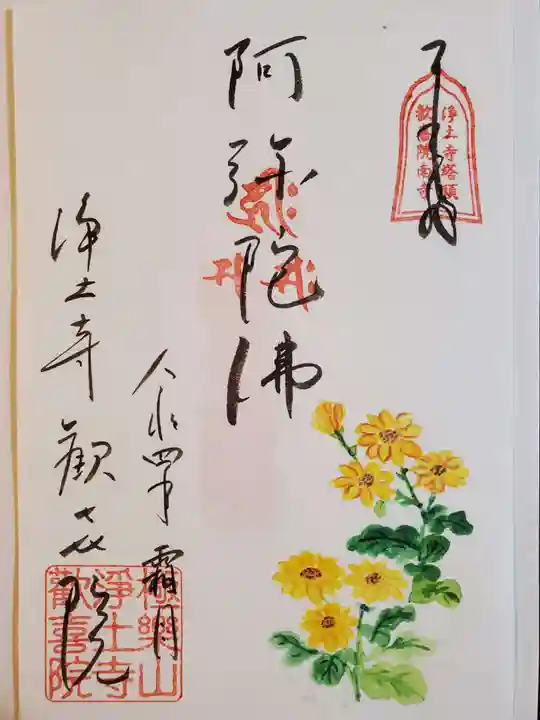 浄土寺塔頭
歓喜院南寺
阿弥陀佛
令和四年 霜月
浄土寺 観喜院
極樂山
淨土寺
歡喜院